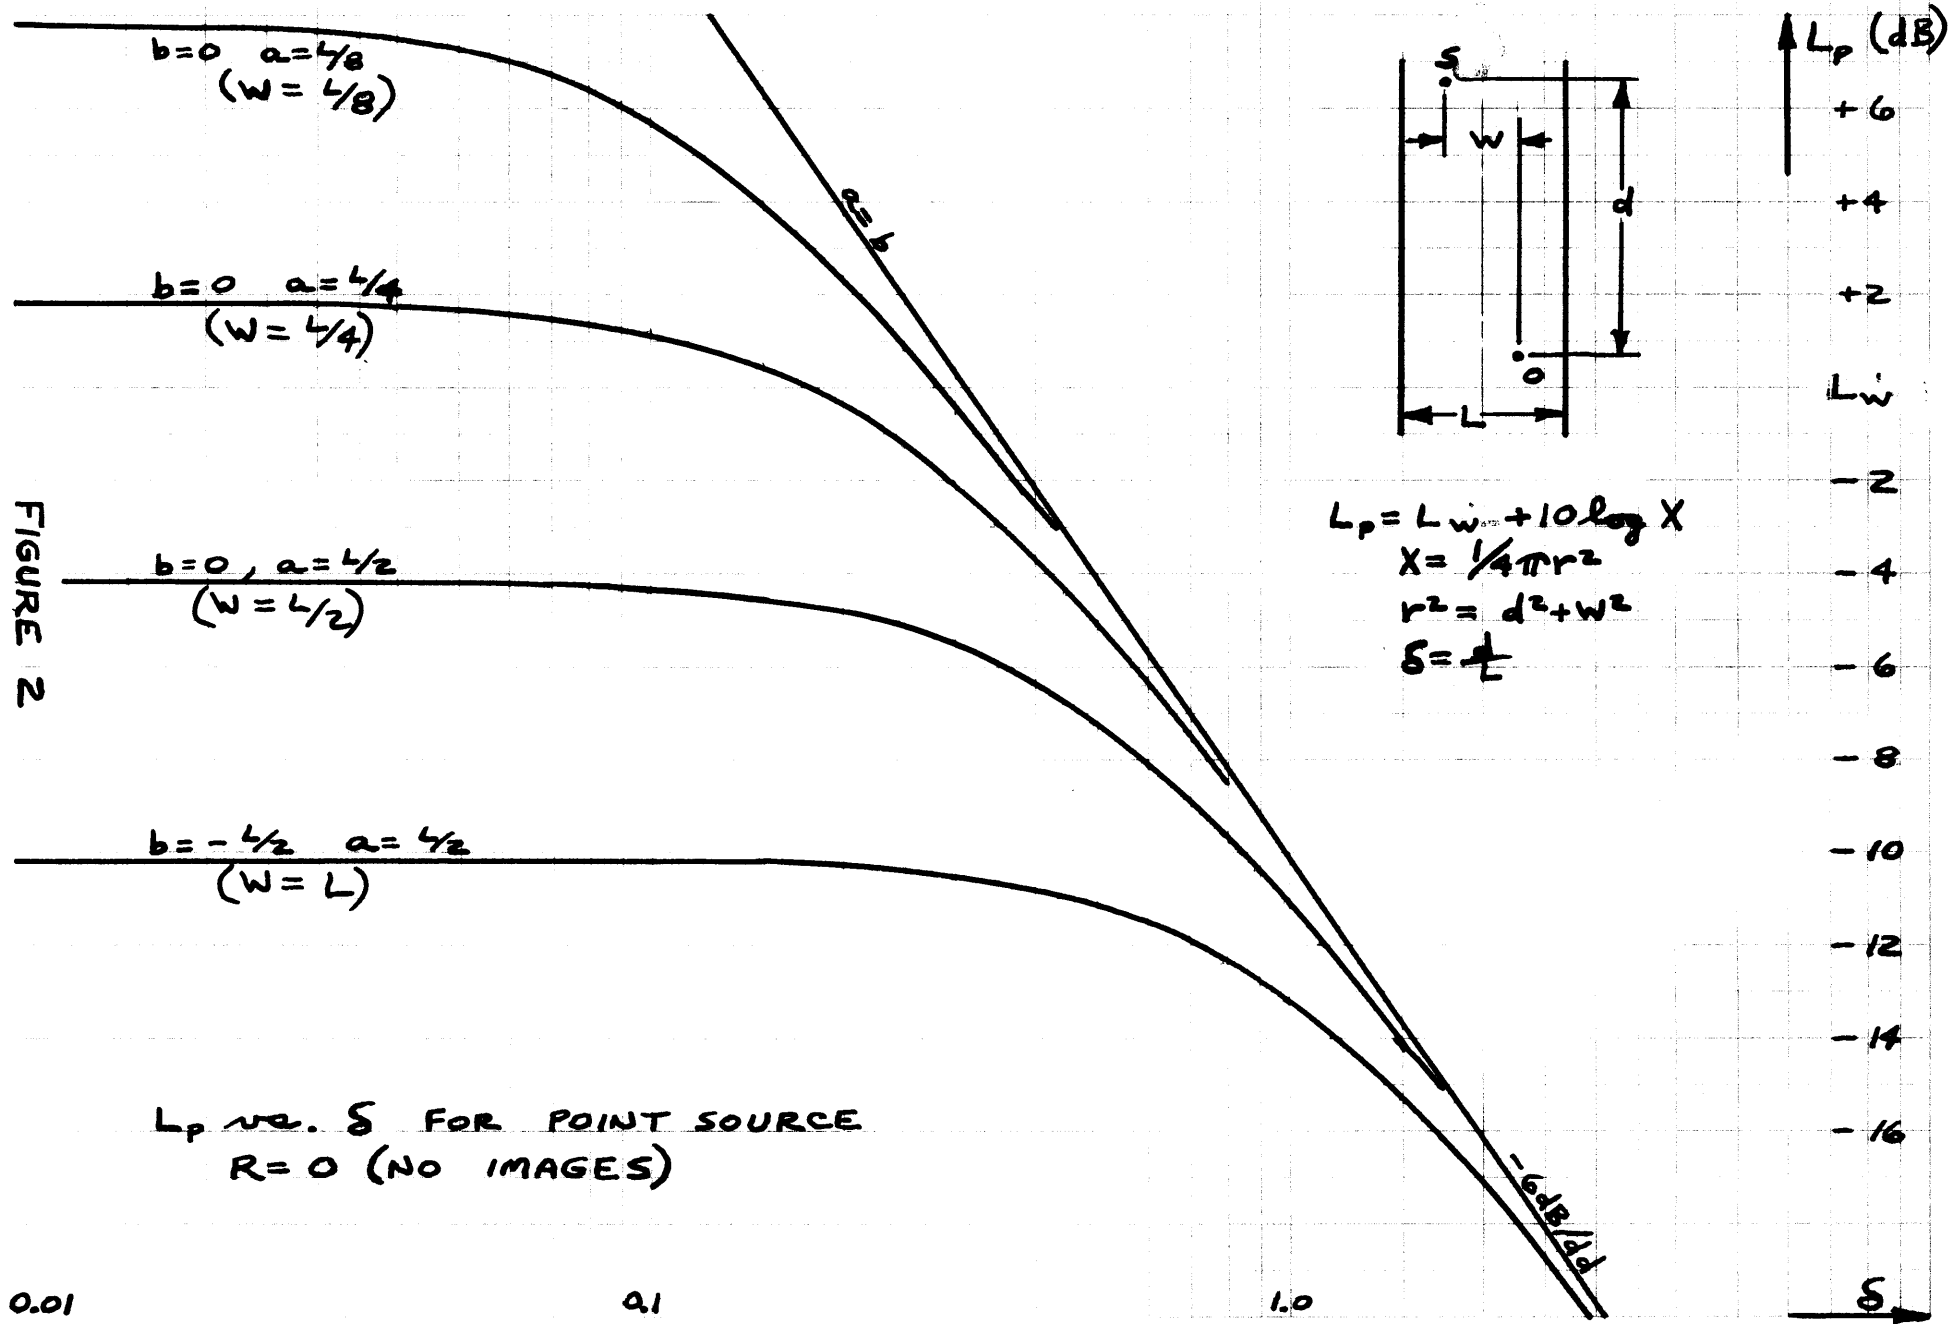 b=0 a=L/8
(W = L/8)
a=b
b=0 a=L/4
(W = L/4)
b=0, a=L/2
(W = L/2)
b=-L/2 a=L/2
(W= L)
FIGURE 2
Lp vs. δ FOR POINT SOURCE
R=0 (NO IMAGES)
-6dB/dd
0.01 0.1 1.0 δ
S
W
d
O
L
Lp = Lẇ + 10 log X
X = 1/4πr²
r² = d²+W²
δ = d/L
Lp (dB)
+6
+4
+2
Lẇ
-2
-4
-6
-8
-10
-12
-14
-16